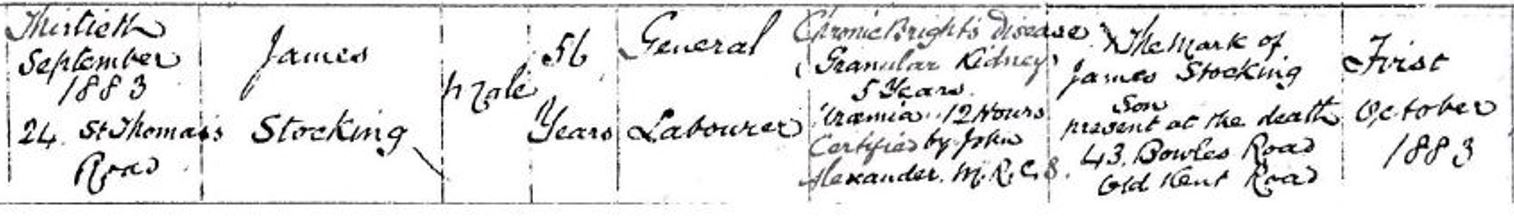 Thirtieth
September
1883
24 St Thomas's
Road
James
Stocking
Male
56
Years
General
Labourer
Chronic Bright's Disease
(Granular Kidney)
5 Years
Uræmia 12 Hours
Certified by John
Alexander. M.R.C.S.
The Mark of
James Stocking
Son
present at the death
43. Bowles Road
Old Kent Road
First
October
1883